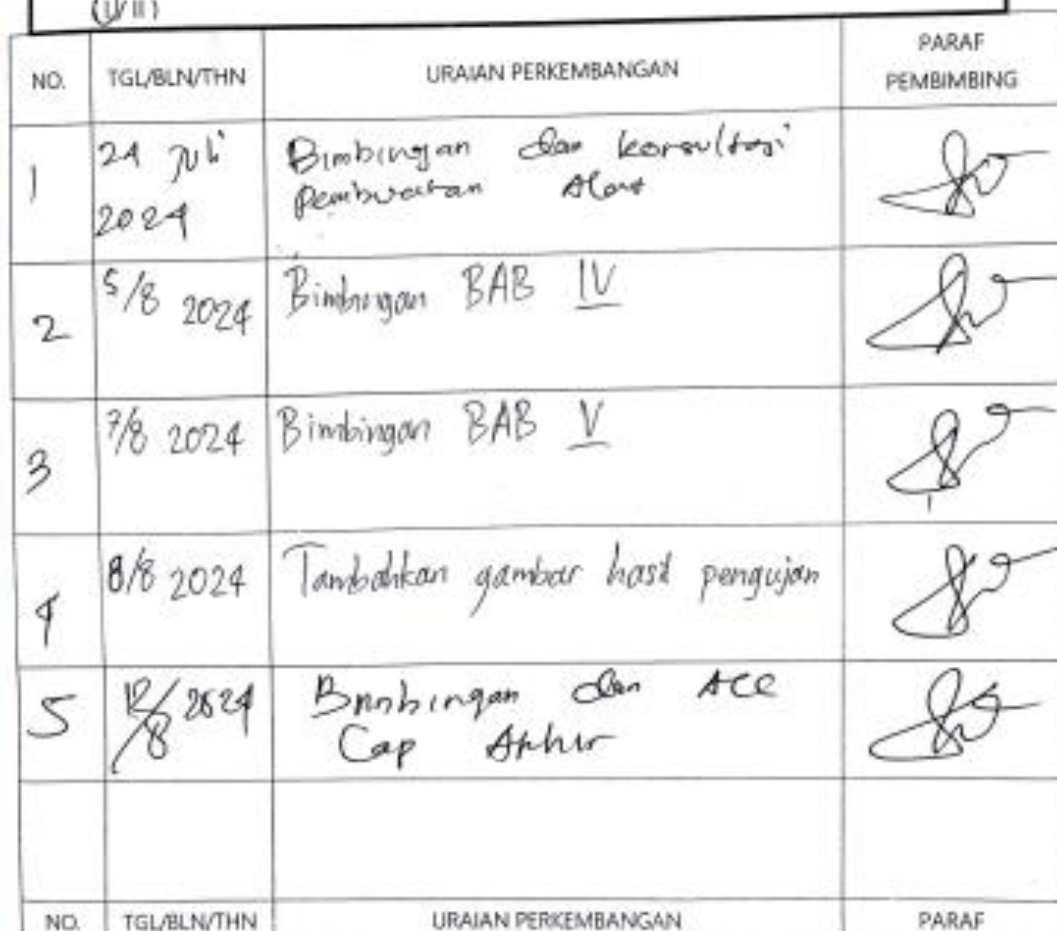 (II/III)
NO. TGL/BLN/THN URAIAN PERKEMBANGAN PARAF
PEMBIMBING
1 24 Juli Bimbingan dan konsultasi
2024 Pembuatan Alat
2 5/8 2024 Bimbingan BAB IV
3 7/8 2024 Bimbingan BAB V
4 8/8 2024 Tambahkan gambar hasil pengujian
5 12/8 2024 Bimbingan dan ACC
Lap Akhir
NO. TGL/BLN/THN URAIAN PERKEMBANGAN PARAF